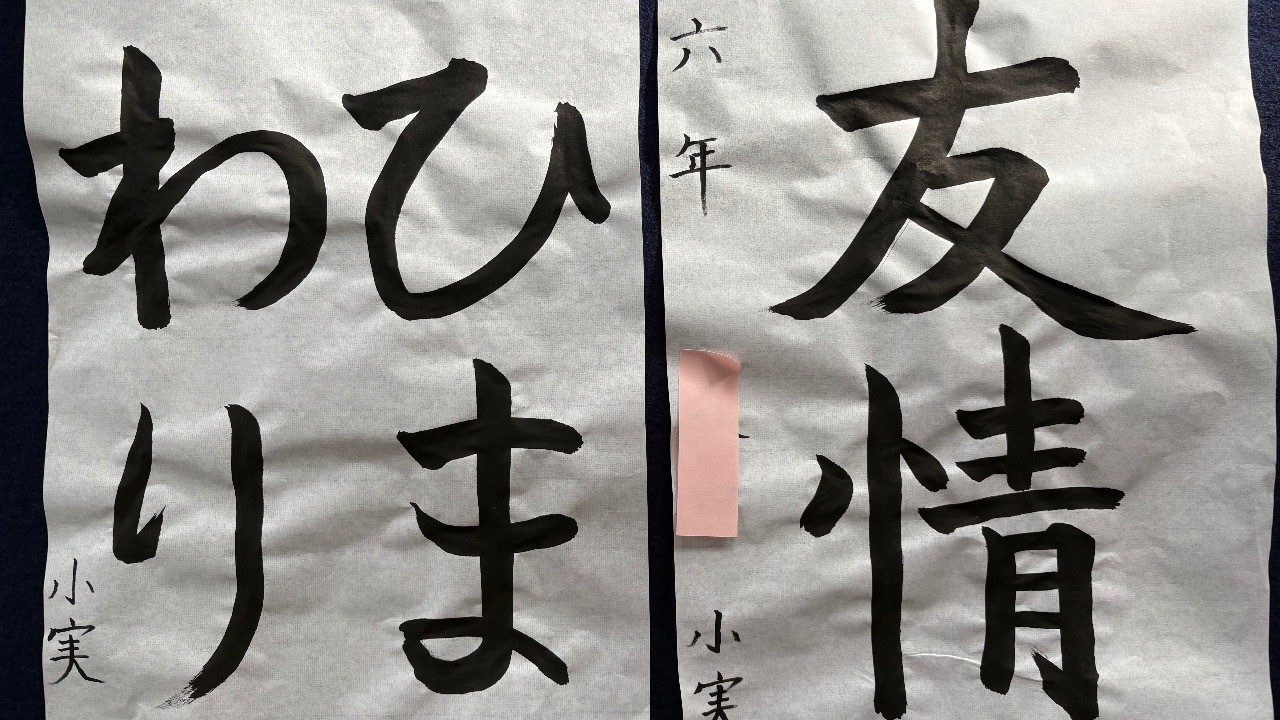 友情
六年
小実
ひま
わり
小実